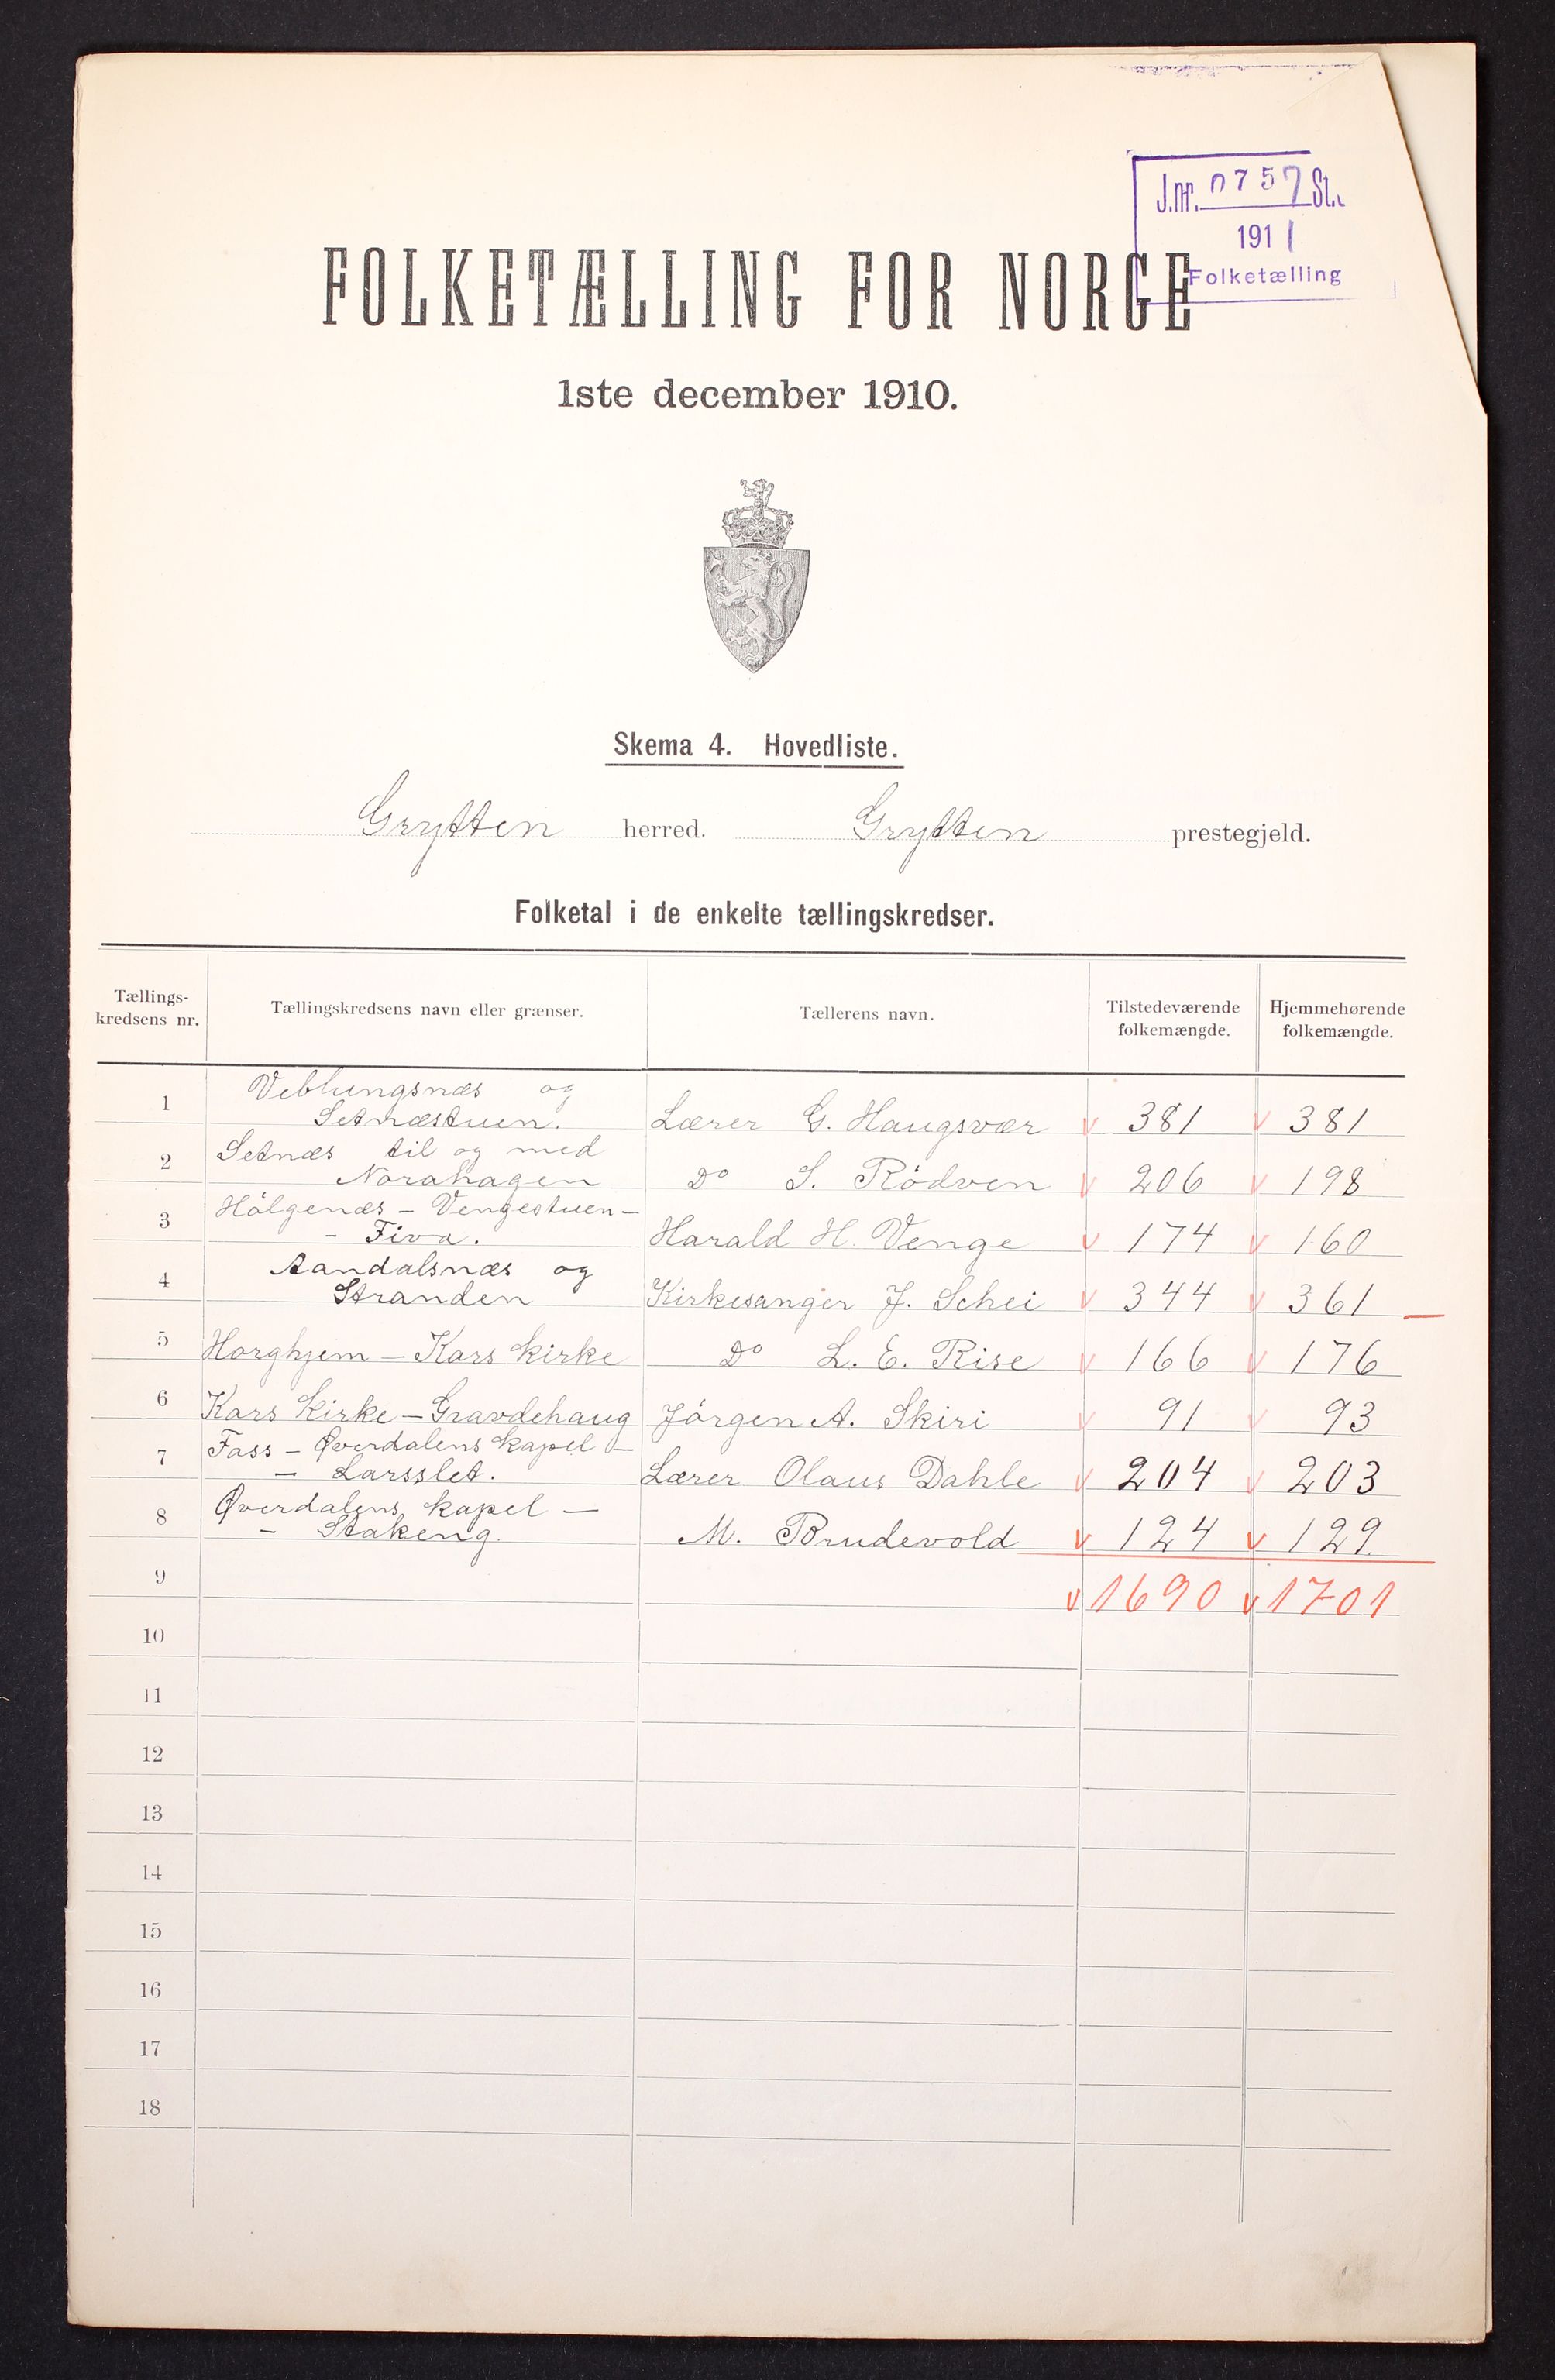 J.nr. 0757 St.
1911
Folketælling
FOLKETÆLLING FOR NORGE
1ste december 1910.
Skema 4. Hovedliste.
Grytten herred. Grytten prestegjeld.
Folketal i de enkelte tællingskredser.
Tællings-
kredsens nr.
Tællingskredsens navn eller grænser.
Tællerens navn.
Tilstedeværende
folkemængde.
Hjemmehørende
folkemængde.
1 Veblungsnæs og
Setnæstuen. Lærer G. Haugsvær v 381 v 381
2 Setnæs til og med
Norahagen Do S. Rödven v 206 v 198
3 Hölgenæs - Vengestuen -
- Fiva. Harald H. Venge v 174 v 160
4 Aandalsnæs og
Stranden Kirkesanger J. Schei v 344 v 361 —
5 Horghjem - Kors kirke Do L. E. Rise v 166 v 176
6 Kors kirke - Gravdehaug Jörgen A. Skiri v 91 v 93
7 Foss - Øverdalens kapel -
- Larsslet. Lærer Olaus Dahle v 204 v 203
8 Øverdalens kapel -
- Stakeng. M. Brudevold v 124 v 129.
9 v 1690 v 1701
10
11
12
13
14
15
16
17
18